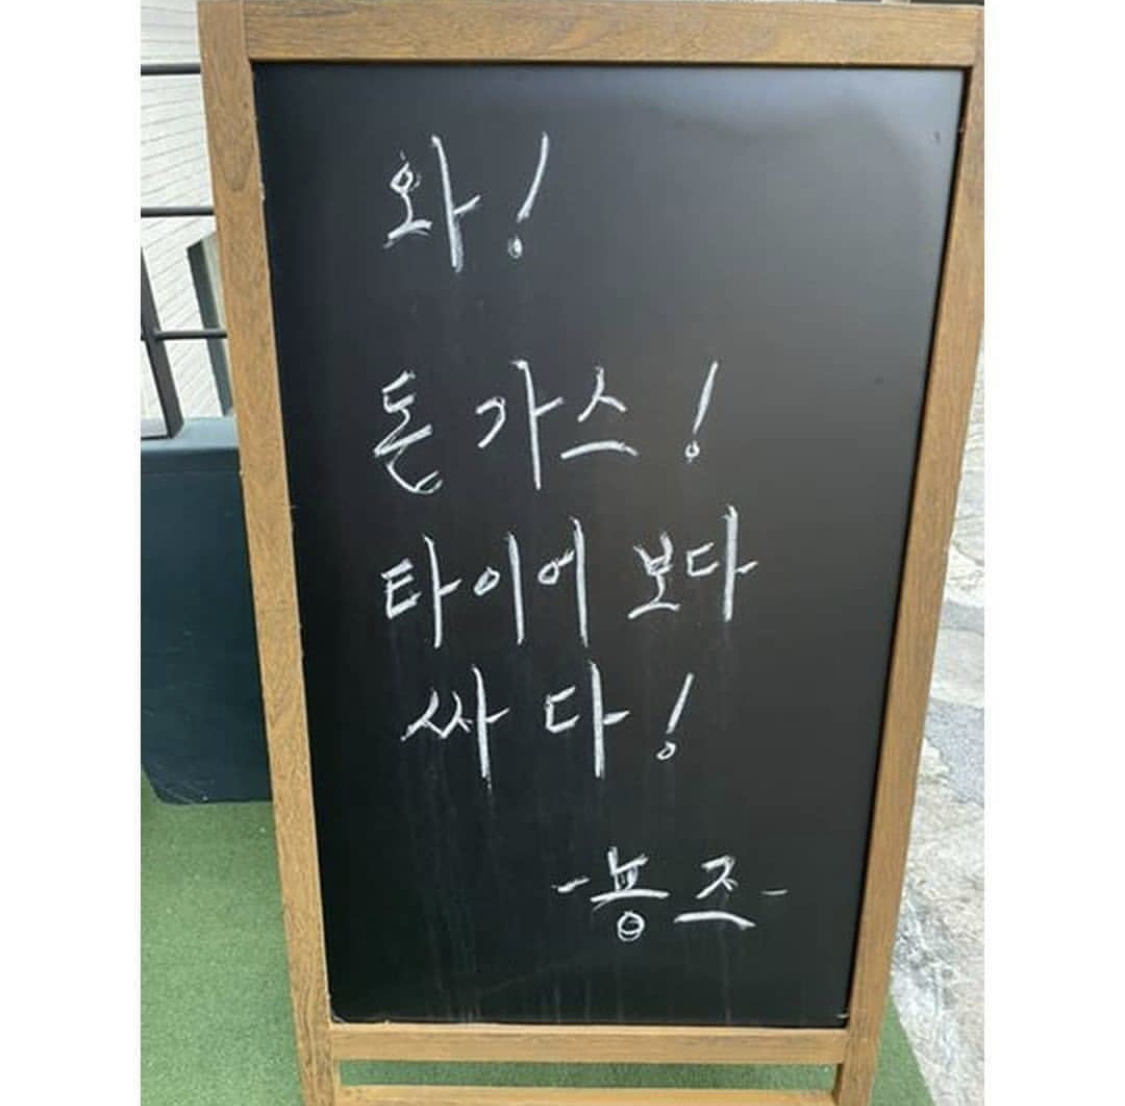 와!
돈 가스!
타이어 보다
싸 다!
즈-